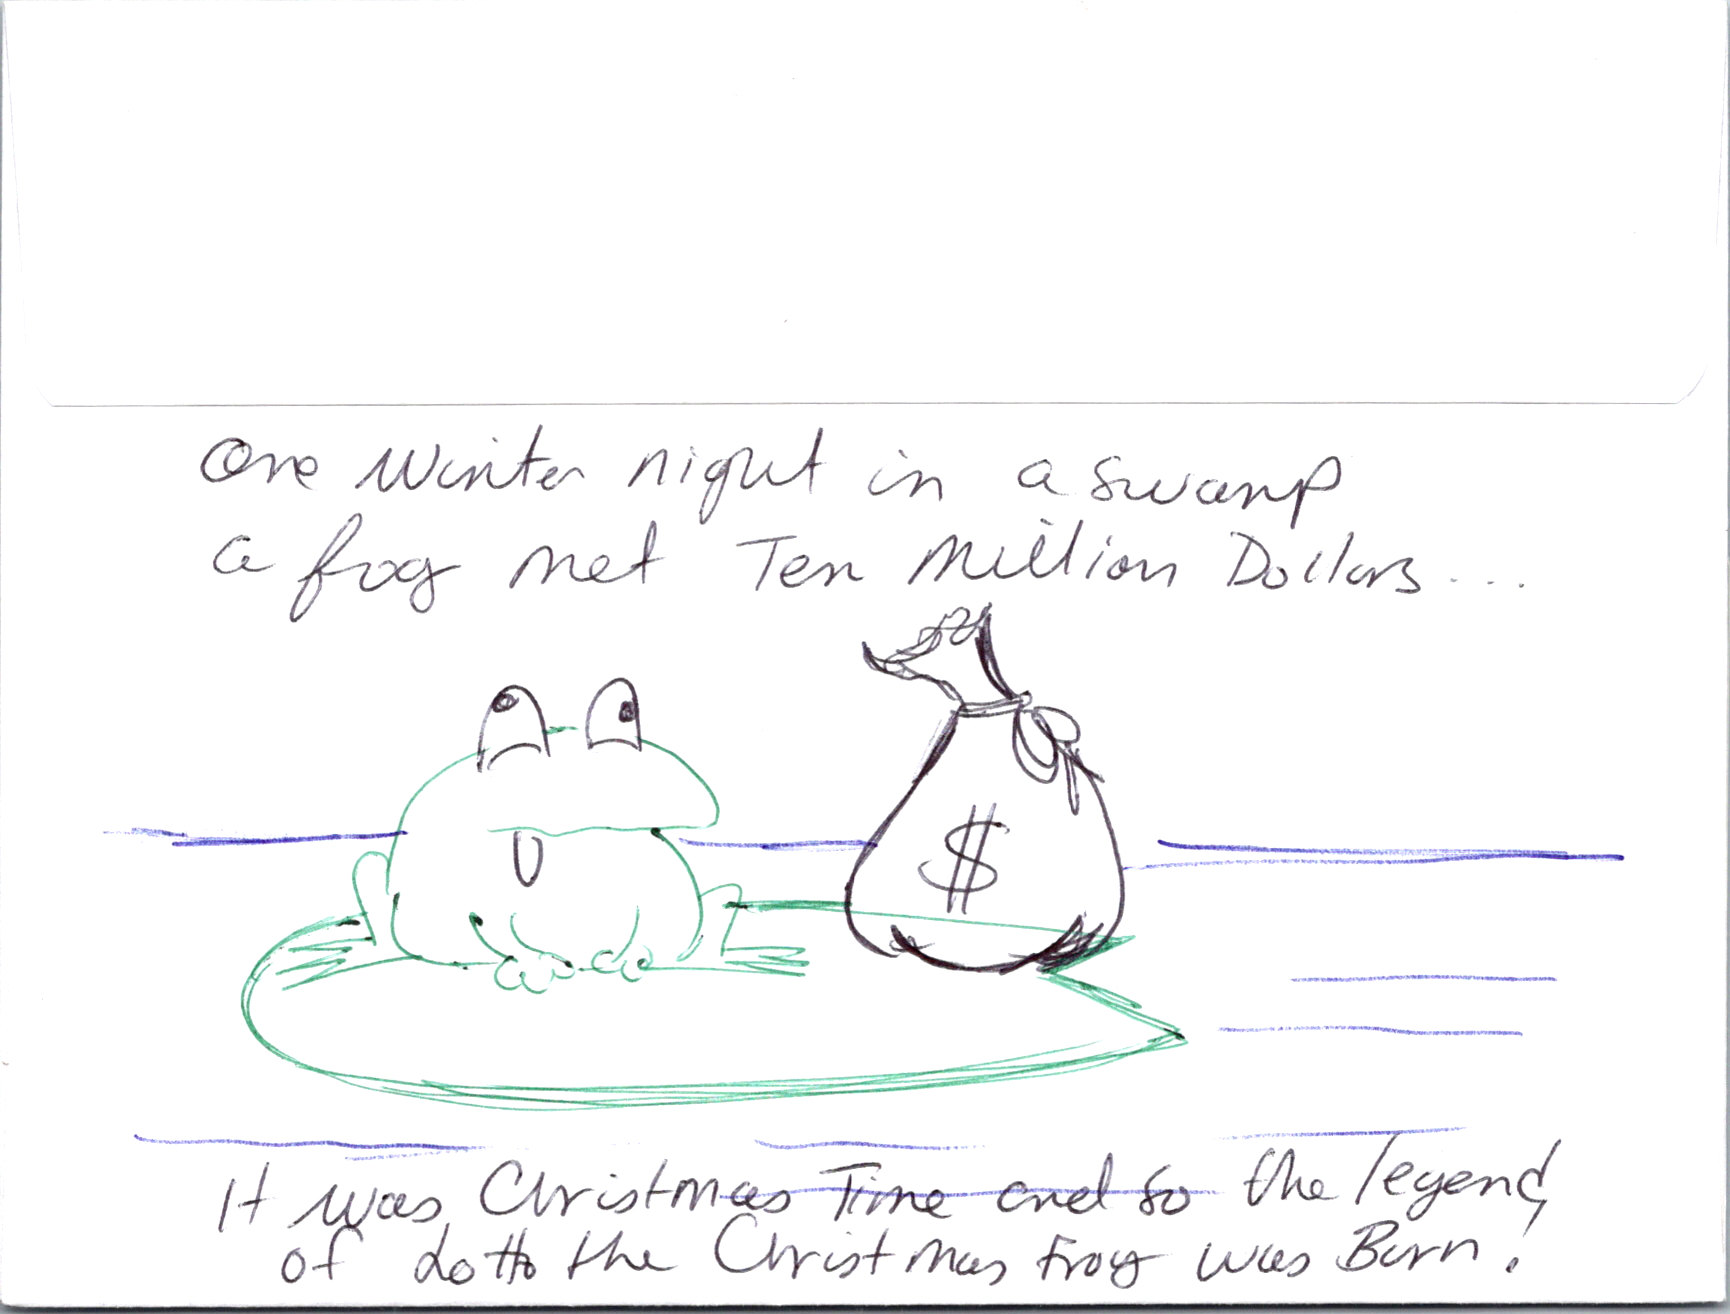 One Winter night in a swamp
a frog met Ten Million Dollars....
$
It was Christmas Time and so the legend
of Lotto the Christmas Frog was Born!